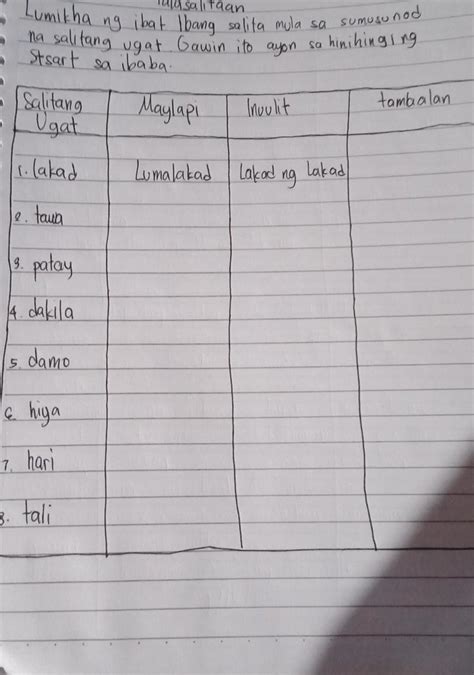 Talasalitaan
Lumikha ng ibat Ibang salita mula sa sumusunod
na salitang ugat. Gawin ito ayon sa hinihinging
Stsart sa ibaba.
Salitang Ugat Maylapi Inuulit tambalan
1. lakad Lumalakad Lakad ng Lakad
2. tawa
3. patay
4. dakila
5. damo
6. hiya
7. hari
8. tali